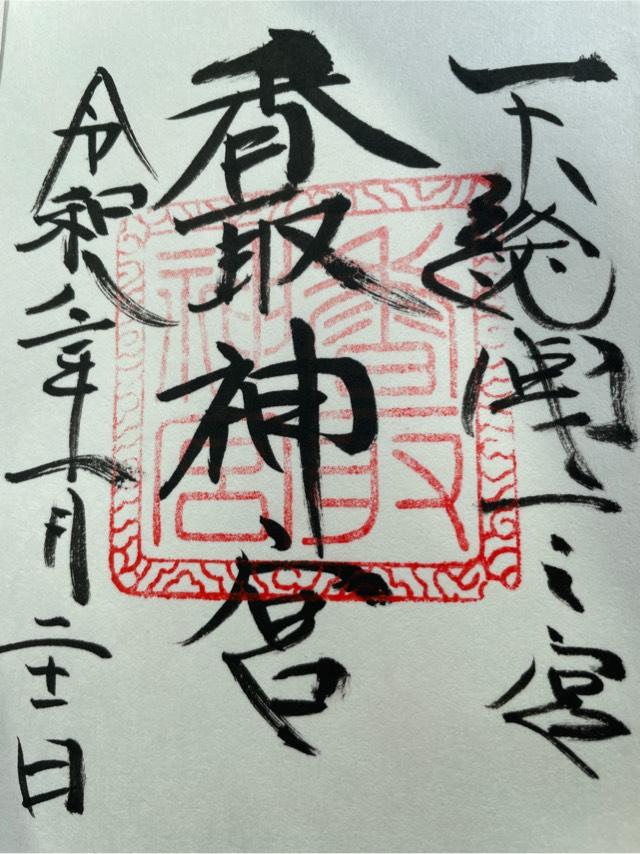 下総國一之宮
香取神宮
令和八年一月二十一日
香取
神宮